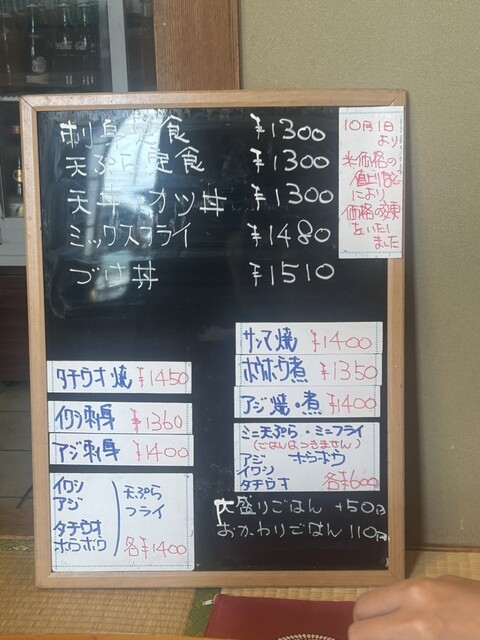 刺身定食 ¥1300
天ぷら定食 ¥1300
天丼 カツ丼 ¥1300
ミックスフライ ¥1480
づけ丼 ¥1510
10月1日
より
米価格の
値上げなど
により
価格の変更
をいたし
ました
タチウオ焼 ¥1450
イワシ刺身 ¥1360
アジ刺身 ¥1400
イワシ
アジ
タチウオ
ホウボウ
天ぷら
フライ
各¥1400
サンマ焼 ¥1400
ホウボウ煮 ¥1350
アジ 焼・煮 ¥1400
ミニ天ぷら・ミニフライ
(ごはんはつきません)
アジ ホウボウ
イワシ
タチウオ 各¥600
大盛りごはん +50円
おかわりごはん 110円